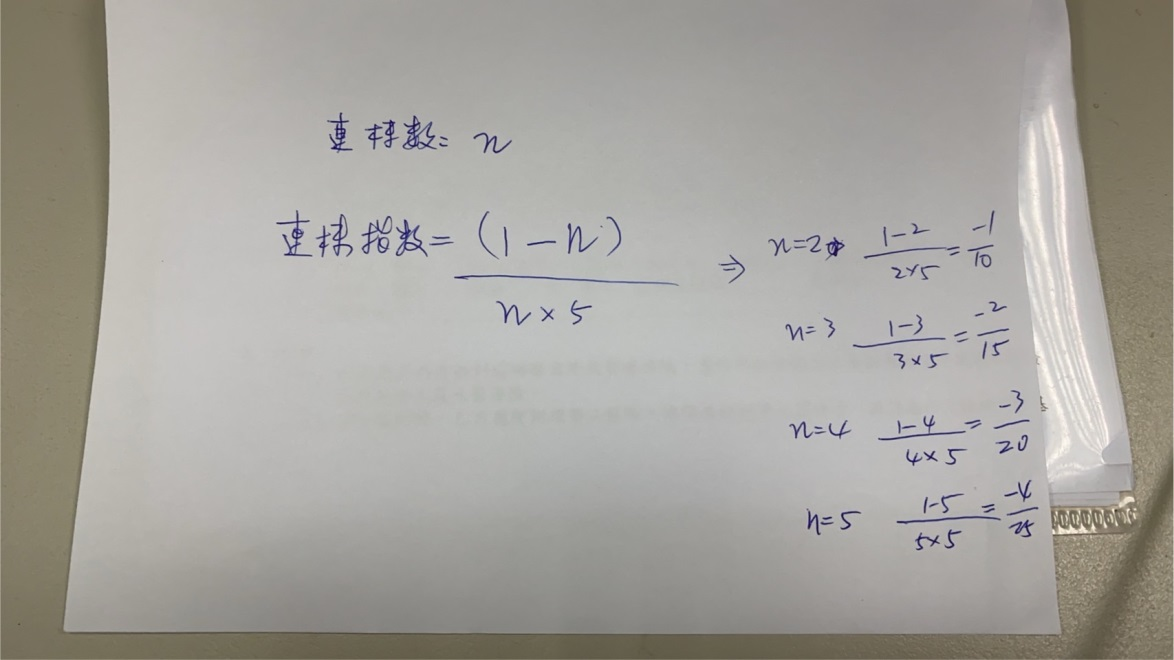 連棟數= n
連棟指數= (1-n) / n×5
⇒ n=2 1-2 / 2×5 = -1 / 10
n=3 1-3 / 3×5 = -2 / 15
n=4 1-4 / 4×5 = -3 / 20
n=5 1-5 / 5×5 = -4 / 25